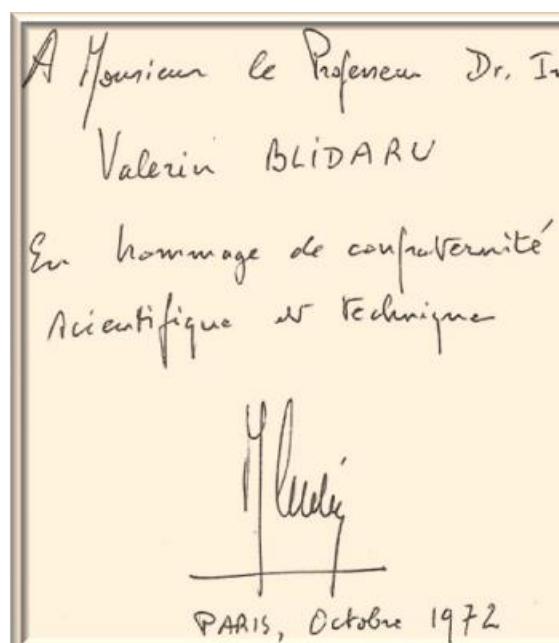 A Monsieur le Professeur Dr. In
Valeriu BLIDARU
En hommage de confraternité
scientifique et technique
PARIS, Octobre 1972